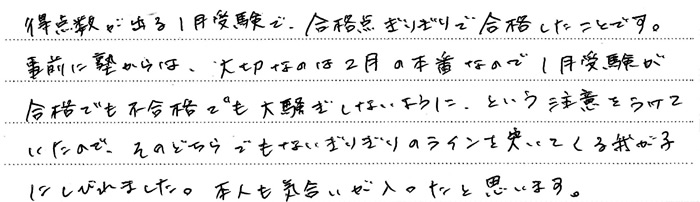 得点数が出る1月受験で、合格点ぎりぎりで合格したことです。
事前に塾からは、大切なのは2月の本番なので1月受験が
合格でも不合格でも大騒ぎしないように、という注意をうけて
いたので、そのどちらでもないぎりぎりのラインを突いてくる我が子
にしびれました。本人も気合いが入ったと思います。